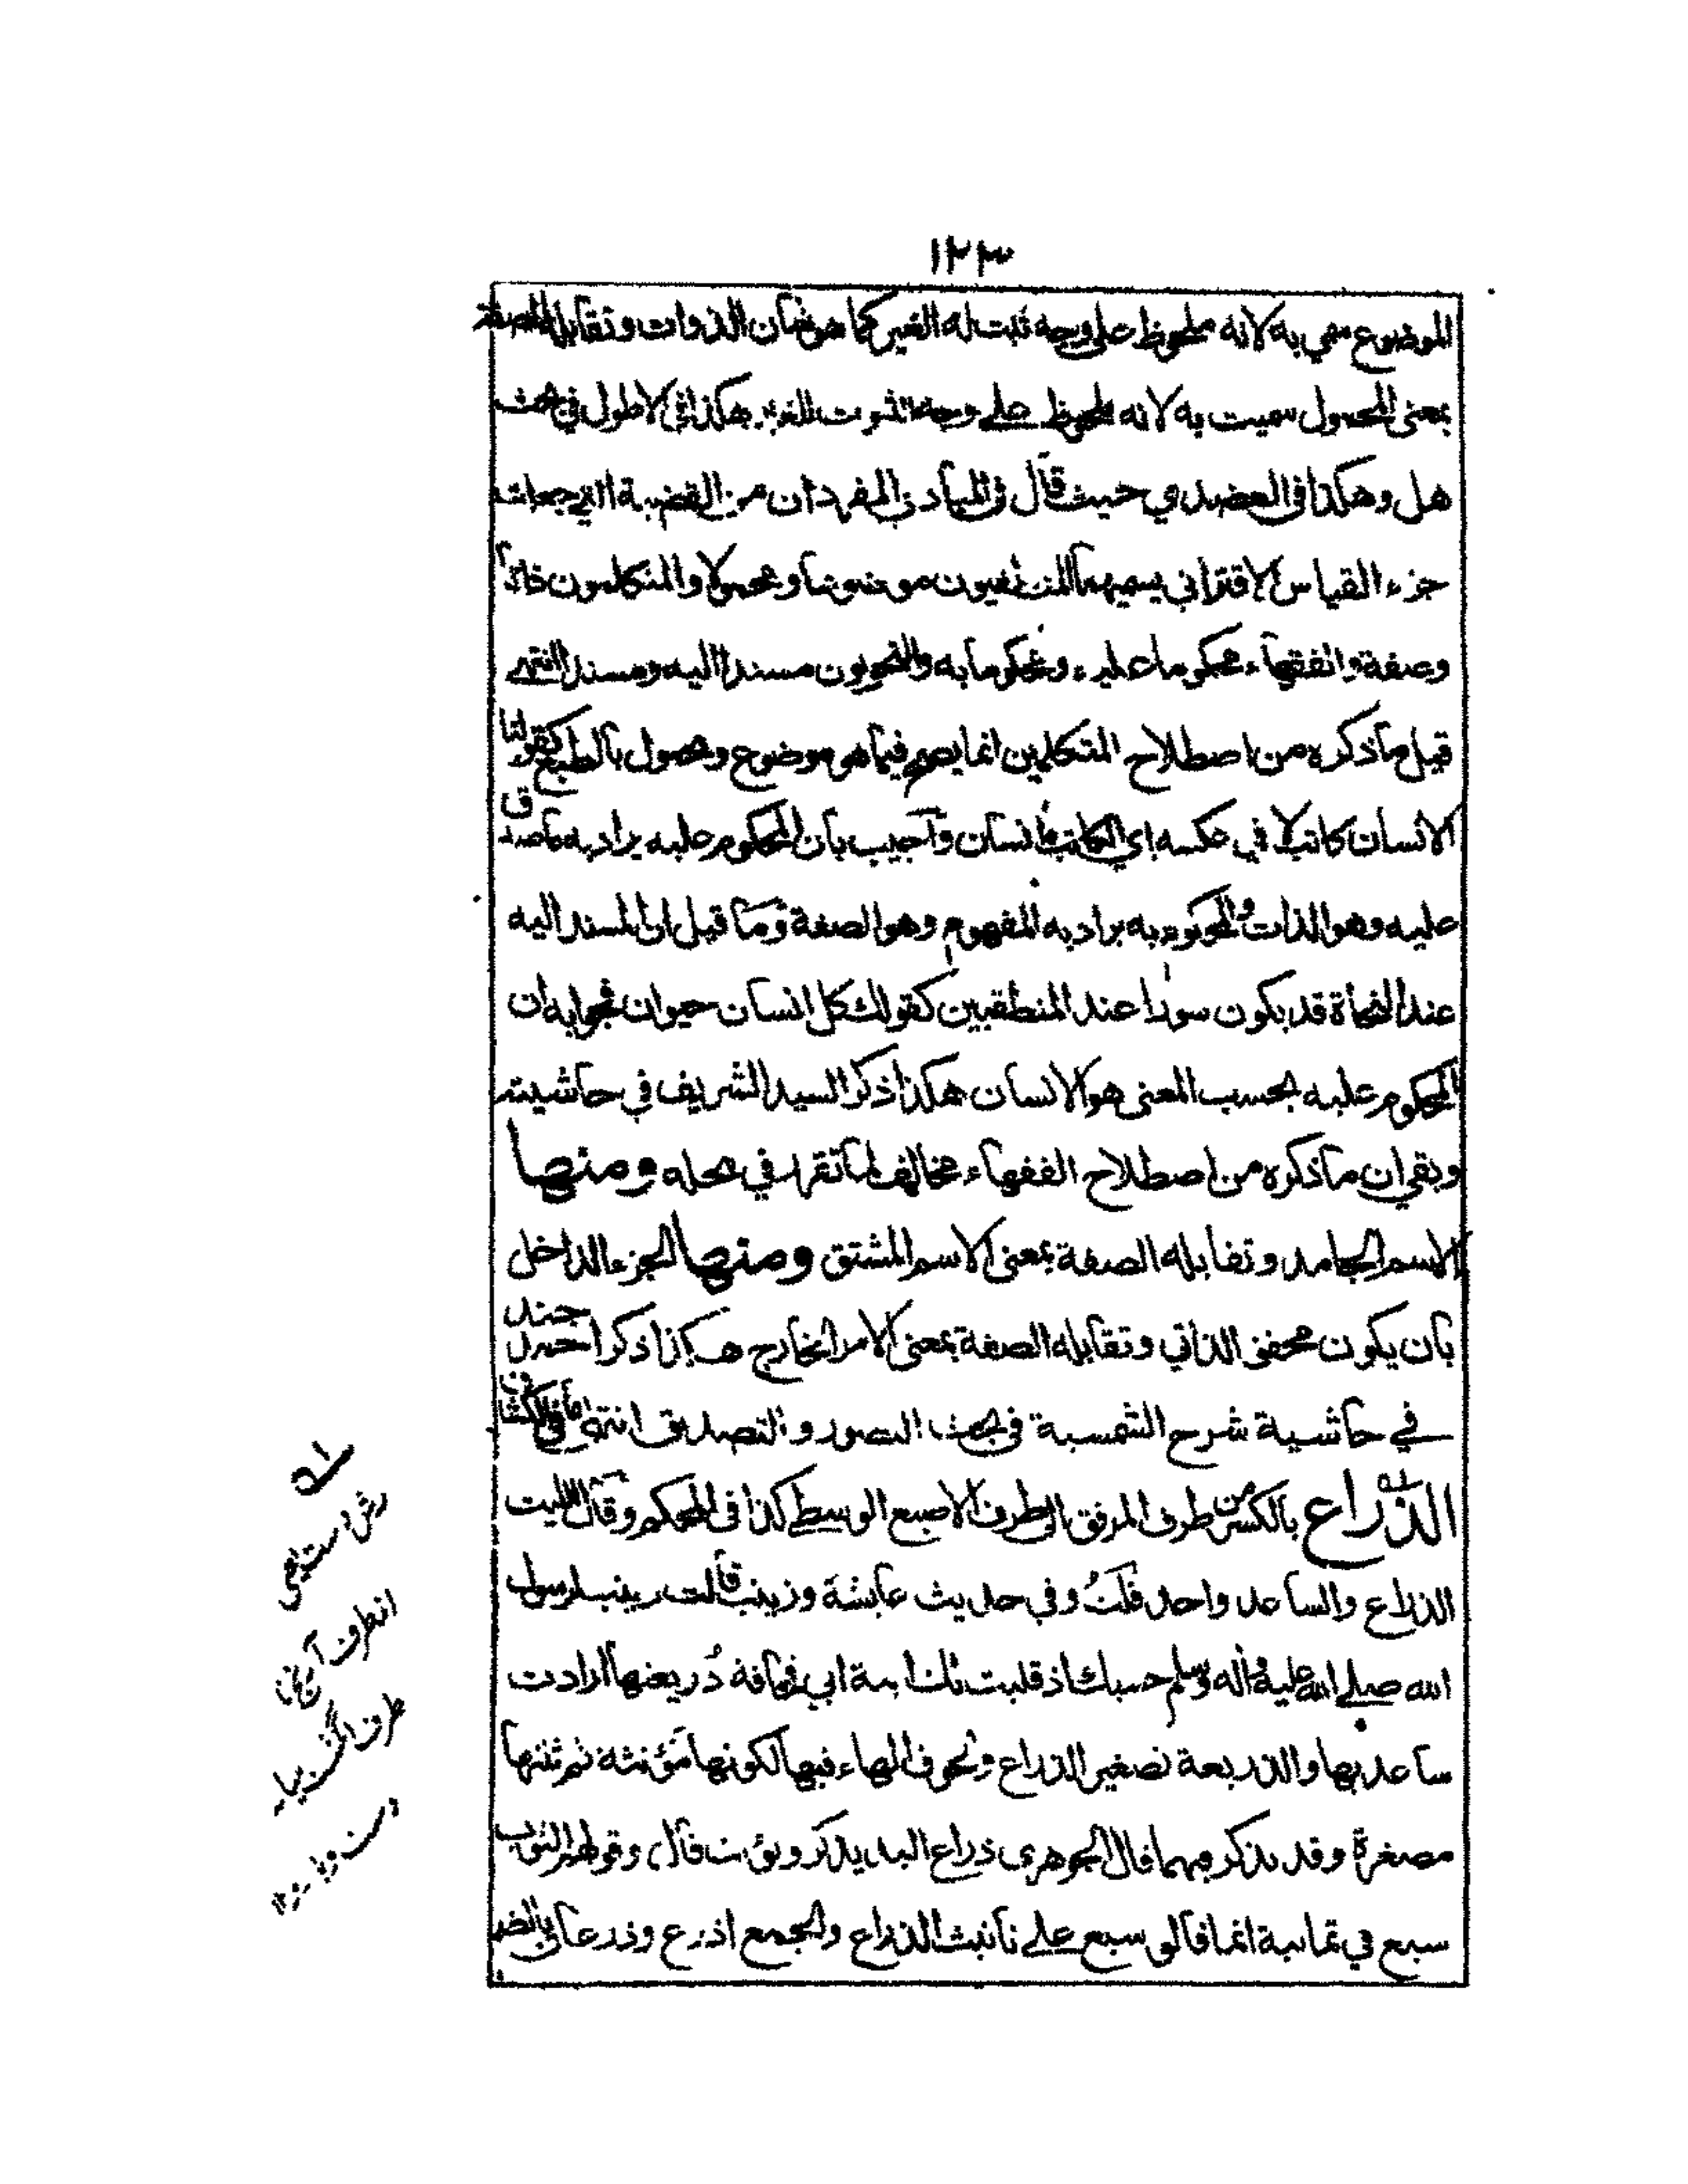 ١٢٣
الموضوع سمي به لانه ملحوظ على وجه ثبت له الغير كما هو شان الذوات وتقابله الصفة
بمعنى المحمول سميت به لانه ملحوظ على وجه الثبوت للغير هكذا في الاطول في بحث
هل وهكذا في العضدي حيث قال في المبادي المفردان من القضية التي جعلت
جزء القياس الاقتراني يسميهما المنطقيون موضوعا ومحمولا والمتكلمون ذاتا
وصفة والفقهاء محكوما عليه ومحكوما به والنحويون مسندا اليه ومسندا انتهى
قيل ما ذكره من اصطلاح المتكلمين انما يصح فيما هو موضوع ومحمول بالطبع كقولنا
الانسان كاتب لا في عكسه اي الكاتب انسان وأجيب بان المحكوم عليه يراد به ما صدق
عليه وهو الذات والمحكوم به يراد به المفهوم وهو الصفة وما قيل ان المسند اليه
عند النحاة قد يكون سورا عند المنطقيين كقولك كل انسان حيوان فجوابه ان
المحكوم عليه بحسب المعنى هو الانسان هكذا ذكر السيد الشريف في حاشيته
وبقي ان ما ذكره من اصطلاح الفقهاء مخالف لما تقرر في محله ومنها
الاسم الجامد وتقابله الصفة بمعنى الاسم المشتق ومنها الجزء الداخل
بان يكون مخفف الذاتي وتقابله الصفة بمعنى الامر الخارج هكذا ذكر احمد جند
في حاشية شرح الشمسية في بحث التصور والتصديق انتهى ما في الكشاف
الذراع بالكسر من طرف المرفق الى طرف الاصبع الوسطى كذا في المحكم وقال الليث
الذراع والساعد واحد قلتُ وفي حديث عايشة وزينب قالت زينب لرسول
الله صلى الله عليه وآله وسلم حسبك اذ قلبت لك ابنة ابي قحافة ذُريعتيها ارادت
ساعديها والذريعة تصغير الذراع ولحوق الهاء فيها لكونها مؤنثة ثم ثنتها
مصغرة وقد يذكر فيهما قال الجوهري ذراع اليد يذكر ويؤنث قال وقولهم الثوب
سبع في ثمانية انما قالوا سبع على تانيث الذراع والجمع اذرع وذرعان بالضم